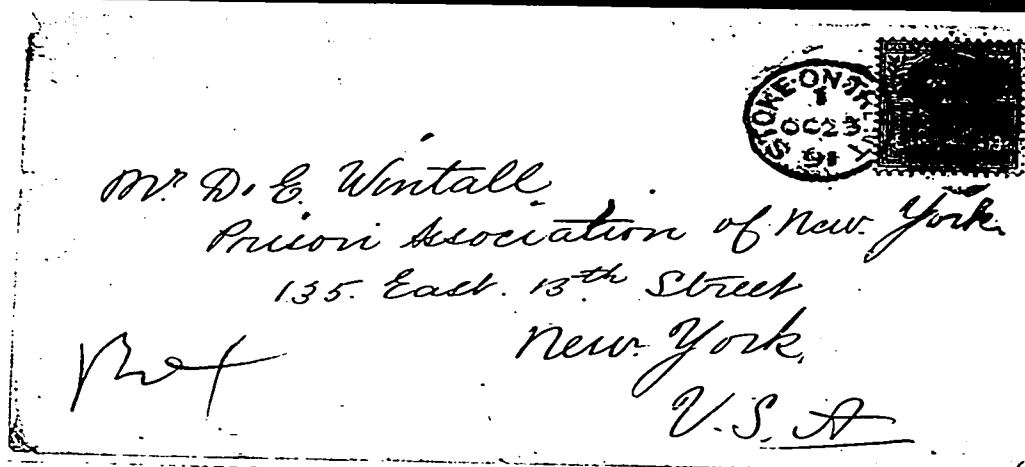 STOKE-ON-TRENT
1
OC 23
91
Mr. D. E. Wintall
Prison Association of New. York.
135. East. 15th Street
New. York.
U.S. A